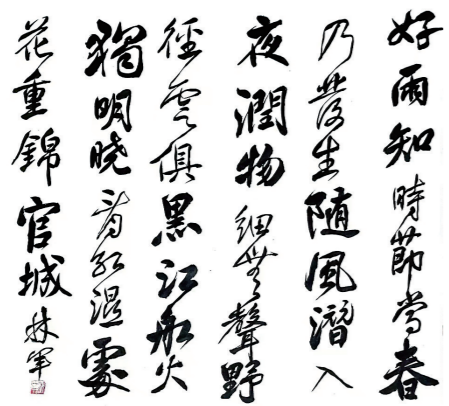 好雨知時節當春
乃發生随風潛入
夜潤物細無聲野
徑雲俱黑江船火
獨明晓看紅濕處
花重錦官城